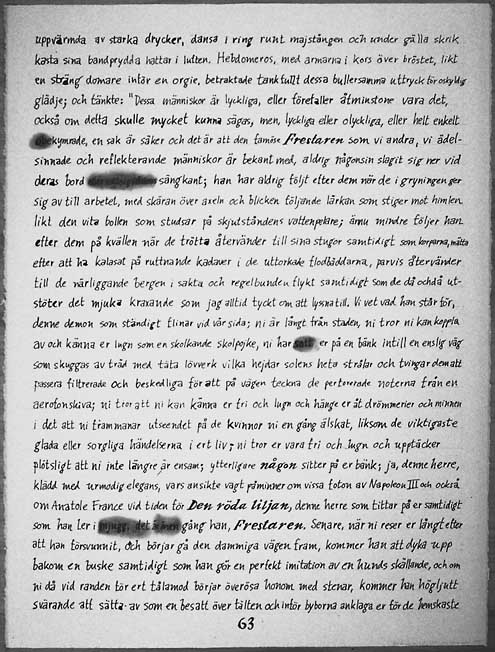 uppvärmda av starka drycker, dansa i ring runt majstången och under gälla skrik
kasta sina bandprydda hattar i luften. Hebdomeros, med armarna i kors över bröstet, likt
en sträng domare inför en orgie, betraktade tankfullt dessa bullersamma uttryck för oskyldig
glädje; och tänkte: "Dessa människor är lyckliga, eller förefaller åtminstone vara det,
också om detta skulle mycket kunna sägas, men, lyckliga eller olyckliga, eller helt enkelt
obekymrade, en sak är säker och det är att den famöse Frestaren som vi andra, vi ädel-
sinnade och reflekterande människor är bekant med, aldrig någonsin slagit sig ner vid
deras bord sängkant; han har aldrig följt efter dem när de i gryningen ger
sig av till arbetet, med skäran över axeln och blicken följande lärkan som stiger mot himlen
likt den vita bollen som studsar på skjutståndens vattenpelare; ännu mindre följer han
efter dem på kvällen när de trötta återvänder till sina stugor samtidigt som korparna, mätta
efter att ha kalasat på ruttnande kadaver i de uttorkade flodbäddarna, parvis återvänder
till de närliggande bergen i sakta och regelbunden flykt samtidigt som de då och då ut-
stöter det mjuka kraxande som jag alltid tyckt om att lyssna till. Vi vet vad han står för,
denne demon som ständigt flinar vid vår sida; ni är långt från staden, ni tror ni kan koppla
av och känna er lugn som en skolkande skolpojke, ni har satt er på en bänk intill en enslig väg
som skuggas av träd med täta lövverk vilka hejdar solens heta strålar och tvingar dem att
passera filtrerade och beskedliga för att på vägen teckna de perforerade noterna från en
aerofonskiva; ni tror att ni kan känna er fri och lugn och hänge er åt drömmerier och minnen
i det att ni frammanar utseendet på de kvinnor ni en gång älskat, liksom de viktigaste
glada eller sorgliga händelserna i ert liv; ni tror er vara fri och lugn och upptäcker
plötsligt att ni inte längre är ensam; ytterligare någon sitter på er bänk; ja, denne herre,
klädd med urmodig elegans, vars ansikte vagt påminner om vissa foton av Napoleon III och också
om Anatole France vid tiden för Den röda liljan, denne herre som tittar på er samtidigt
som han ler i mjugg, det är ännu en gång han, Frestaren. Senare, när ni reser er långt efter
att han försvunnit, och börjar gå den dammiga vägen fram, kommer han att dyka upp
bakom en buske samtidigt som han gör en perfekt imitation av en hunds skällande, och om
ni då vid randen för ert tålamod börjar överösa honom med stenar, kommer han högljutt
svärande att sätta av som en besatt över fälten och inför byborna anklaga er för de hemskaste
63